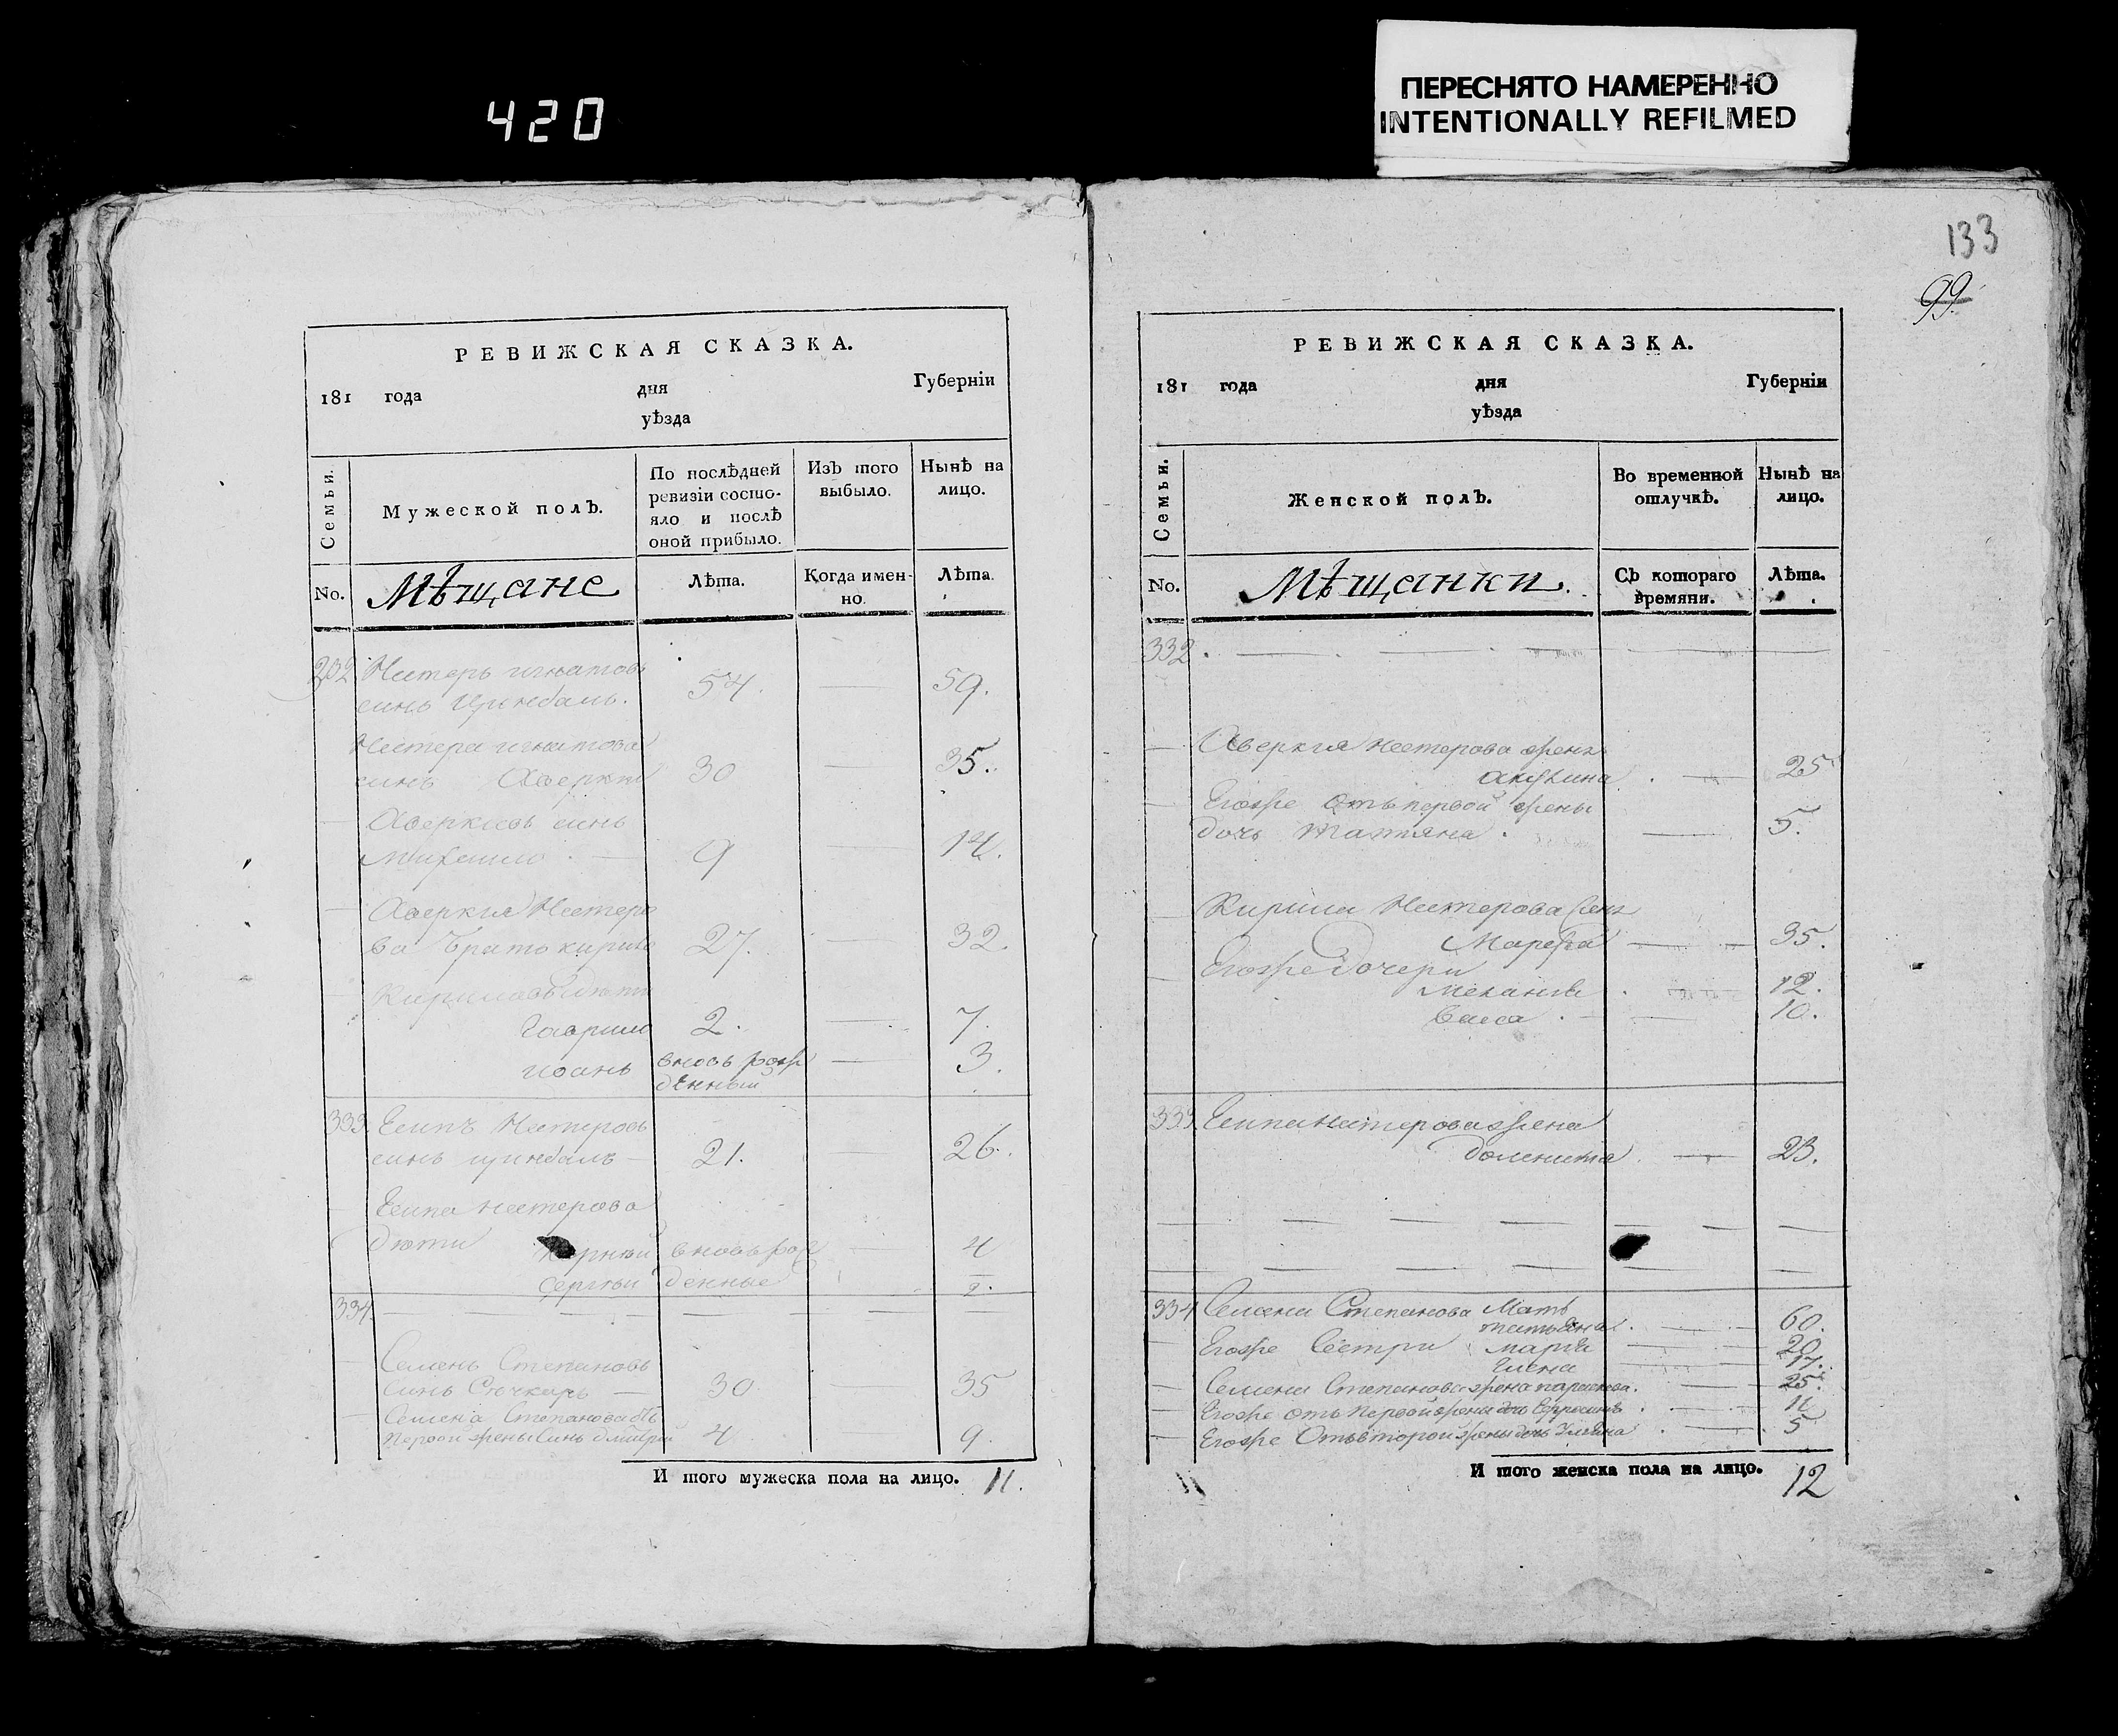 420
ПЕРЕСНЯТО НАМЕРЕННО
INTENTIONALLY REFILMED
133
99.
РЕВИЖСКАЯ СКАЗКА.
181 года дня Губерніи
уѣзда
Семьи.
Мужеской полъ.
По послѣдней ревизіи состо-
яло и послѣ оной прибыло.
Изъ того выбыло.
Нынѣ на лицо.
No. Мѣщане Лѣта. Когда имен-
но. Лѣта.
Нестеръ игнатовъ
синъ 54. — 59.
Нестера игнатова
синъ Аверкий 30 — 35.
Аверкиевъ синъ
Михаило. — 9 — 14.
Аверкия Нестеро
ва братъ кирило 27. — 32.
Кириловы дѣти
Гаврило 2. — 7.
иоанъ вновь рож
денный — 3.
333. Есипъ Нестеровъ
синъ цинбалъ — 21. — 26.
Есипа нестерова
дѣти Корнѣй вновь рож — 4
Сергѣй денные 2.
334. — — — — — —
Семенъ Степановъ
синъ — 30. — 35
Семена Степанова отъ
первой жены синъ дмитрий 4 — 9.
И того мужеска пола на лицо. 11.
РЕВИЖСКАЯ СКАЗКА.
181 года дня Губерніи
уѣзда
Семьи.
Женской полъ.
Во временной отлучкѣ.
Нынѣ на лицо.
No. Мѣщанки. Съ котораго
времяни. Лѣта.
332. — — — — — —
— Аверкия нестерова жена
акулина. — 25
— Егожъ отъ первой жены
дочь татияна. — 5.
— Кирила Нестерова жена
Марфа — — 35.
— Егоже дочери
Мелания. — 12.
Васса. — 10.
333. Есипа нестерова жена
доменика. — 23.
— — — — — — —
— — — — — — —
334 Семена Степанова Мать
татьяна. — 60.
— Егоже Сестри мария — 20
Елена — 17.
— Семена Степанова жена параскева. — 25.
— Егоже отъ первой жены дочь Ефросиня. — 11
— Егоже Отъ второй жены дочь — 5
И того женска пола на лицо. 12